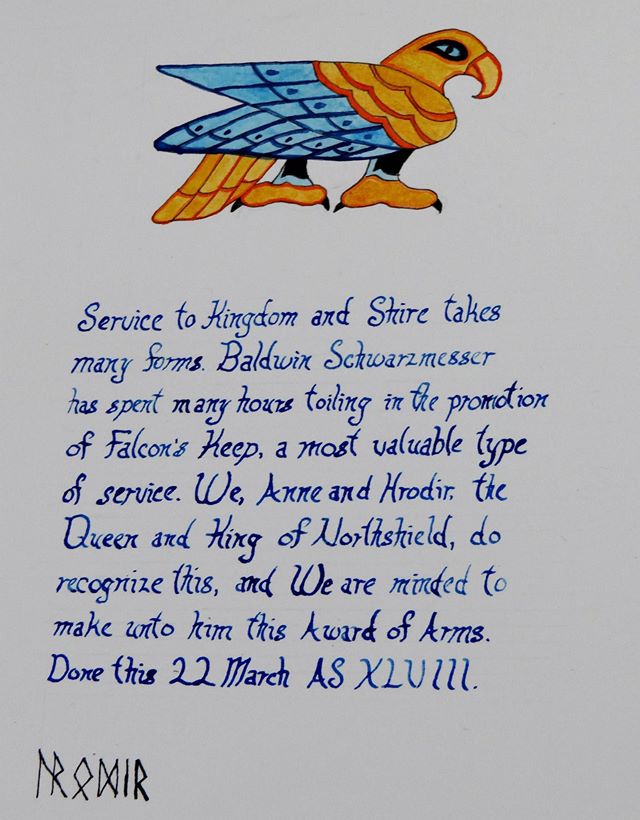 Service to Kingdom and Shire takes
many forms. Baldwin Schwarzmesser
has spent many hours toiling in the promotion
of Falcon's Keep, a most valuable type
of service. We, Anne and Hrodir, the
Queen and King of Northshield, do
recognize this, and We are minded to
make unto him this Award of Arms.
Done this 22 March AS XLVIII.
ᚺᚱᛟᛞᛁᚱ